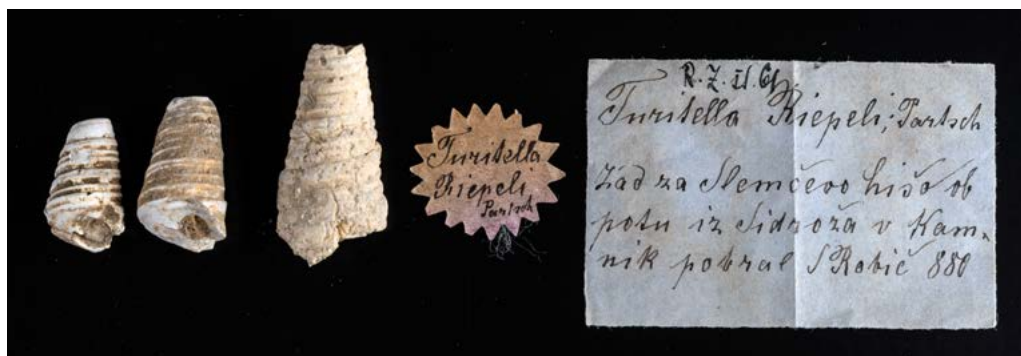 Turitella
Riepeli
Partsch
R. Z. II.
Turitella Riepeli; Partsch
Zad za Slemčevo hišo ob
potu iz Sidroža v Kam-
nik pobral S Robič 880